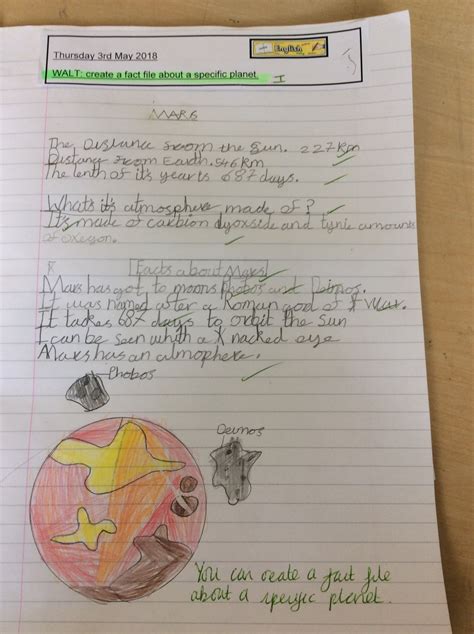 English
Thursday 3rd May 2018
WALT: create a fact file about a specific planet
I
MARS
The Distance from the Sun. 227km
Distance from Earth. 546km
The lenth of it's year is 687 days.
What's it's atmosphere made of?
It's made of carbion dyoxside and tynie amounts
of oxegon.
Facts about Mars
Mars has got to moons Phobos and Deimos.
It was named after a Roman god of War.
It takes 687 days to orbit the Sun
I can be seen whith a nacked eye
Mars has an atmophere.
Phobos
Deimos
You can create a fact file
about a specific planet.